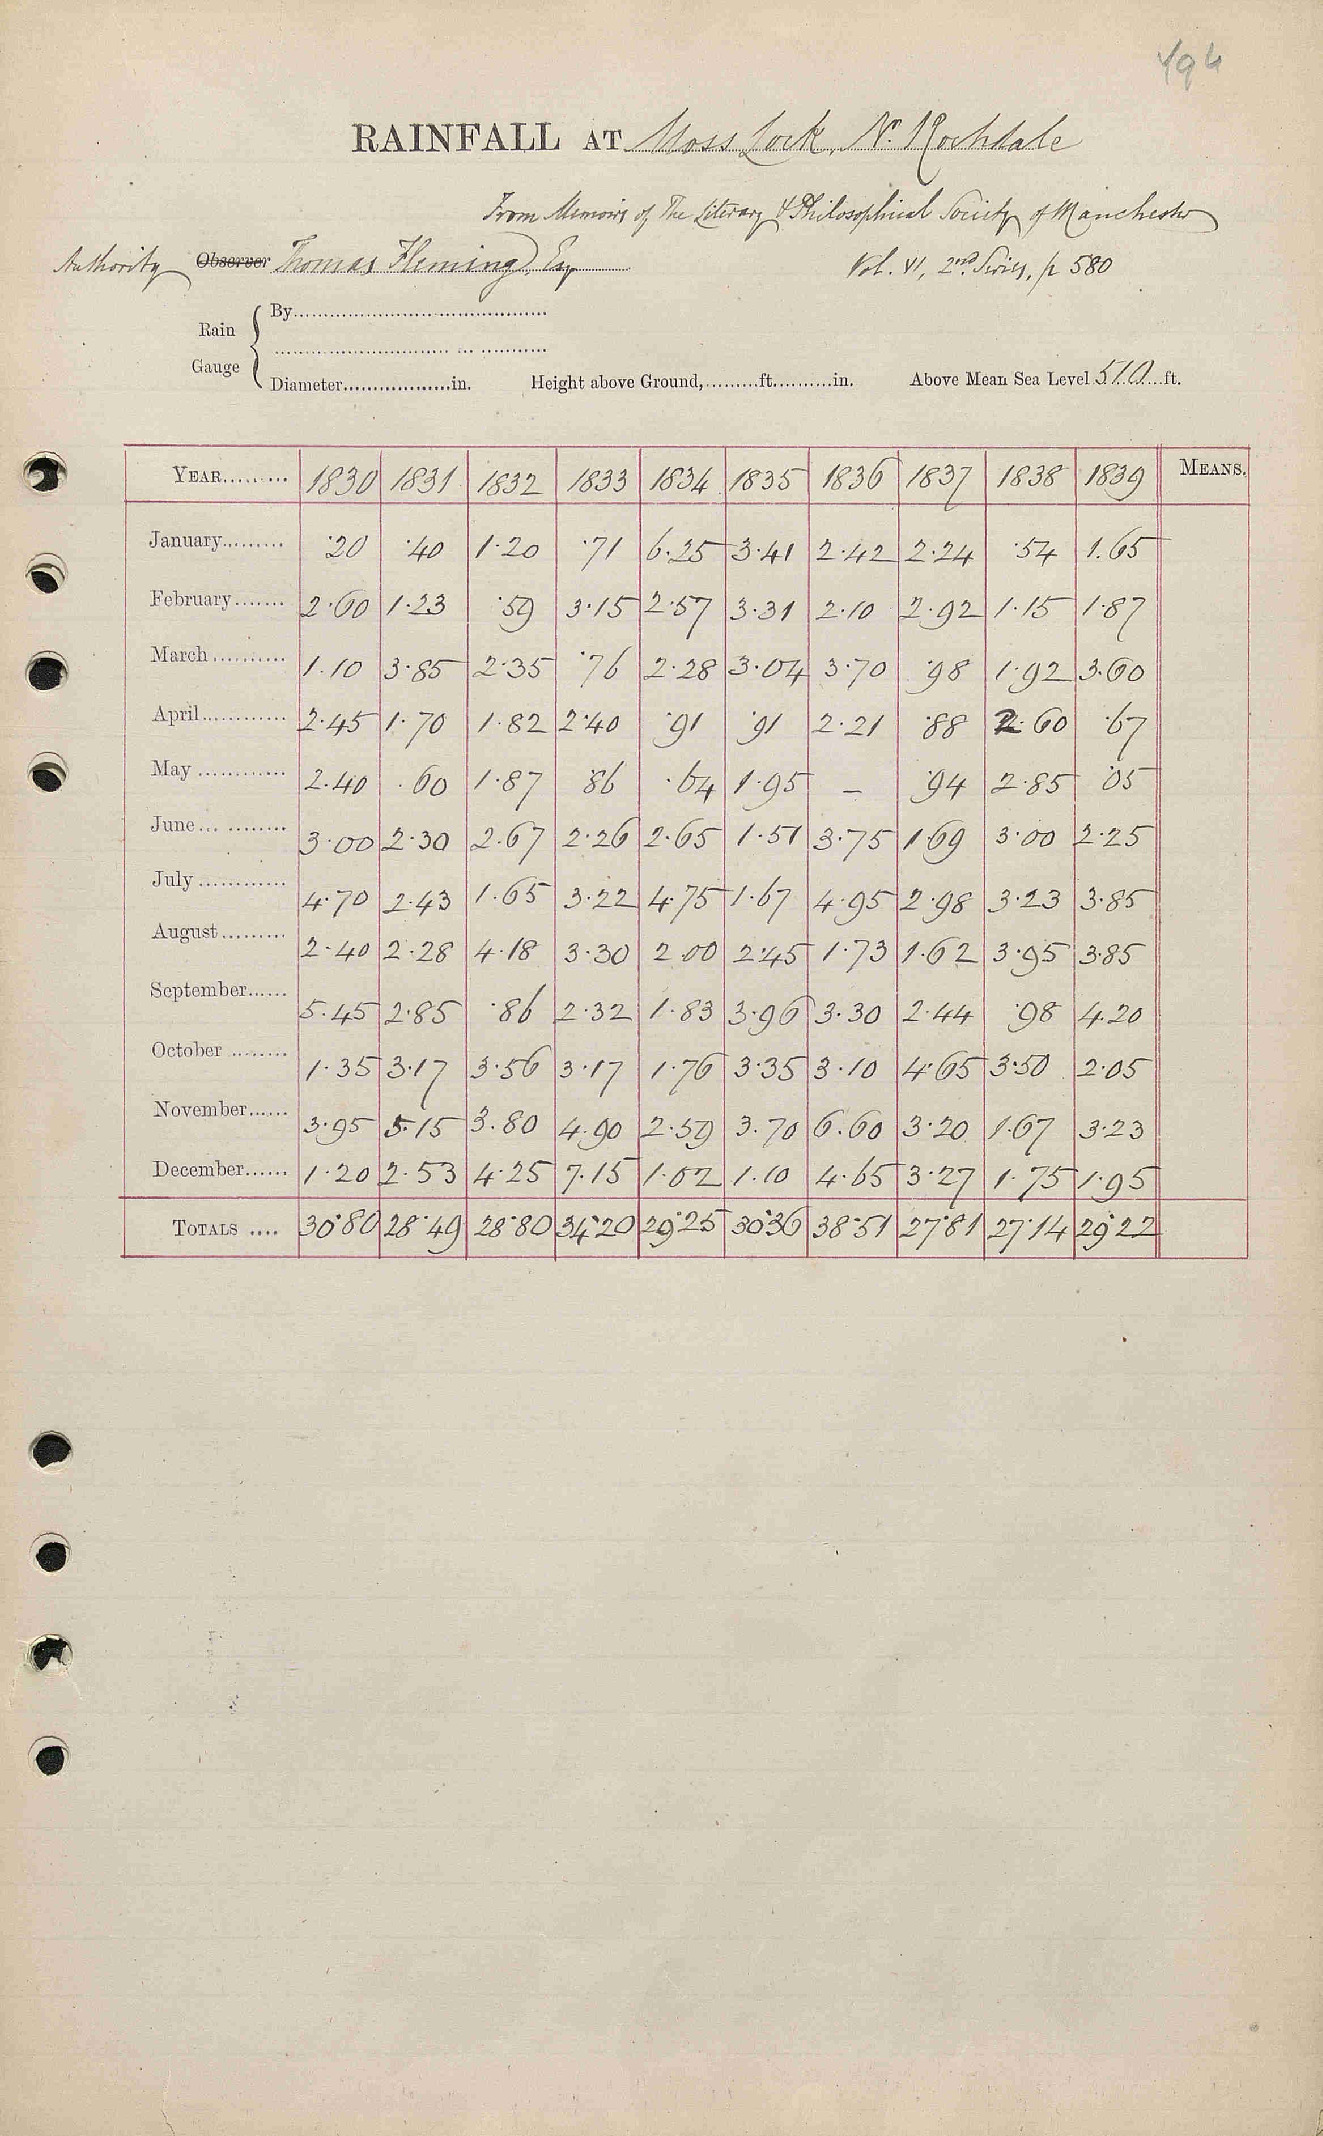 494
RAINFALL AT Moss Lock, Nr. Rochdale
From Memoirs of The Literary & Philosophical Society of Manchester
Authority Observer Thomas Fleming, Esq Vol. VI, 2nd Series, p 580
Rain Gauge
By
Diameter in. Height above Ground, ft. in. Above Mean Sea Level 510 ft.
YEAR 1830 1831 1832 1833 1834 1835 1836 1837 1838 1839 MEANS.
January ·20 ·40 1·20 ·71 6·25 3·41 2·42 2·24 ·54 1·65
February 2·60 1·23 ·59 3·15 2·57 3·31 2·10 2·92 1·15 1·87
March 1·10 3·85 2·35 ·76 2·28 3·04 3·70 ·98 1·92 3·60
April 2·45 1·70 1·82 2·40 ·91 ·91 2·21 ·88 2·60 ·67
May 2·40 ·60 1·87 ·86 ·64 1·95 – ·94 2·85 ·05
June 3·00 2·30 2·67 2·26 2·65 1·51 3·75 1·69 3·00 2·25
July 4·70 2·43 1·65 3·22 4·75 1·67 4·95 2·98 3·23 3·85
August 2·40 2·28 4·18 3·30 2·00 2·45 1·73 1·62 3·95 3·85
September 5·45 2·85 ·86 2·32 1·83 3·96 3·30 2·44 ·98 4·20
October 1·35 3·17 3·56 3·17 1·76 3·35 3·10 4·65 3·50 2·05
November 3·95 5·15 3·80 4·90 2·59 3·70 6·60 3·20 1·67 3·23
December 1·20 2·53 4·25 7·15 1·02 1·10 4·65 3·27 1·75 1·95
TOTALS 30·80 28·49 28·80 34·20 29·25 30·36 38·51 27·81 27·14 29·22